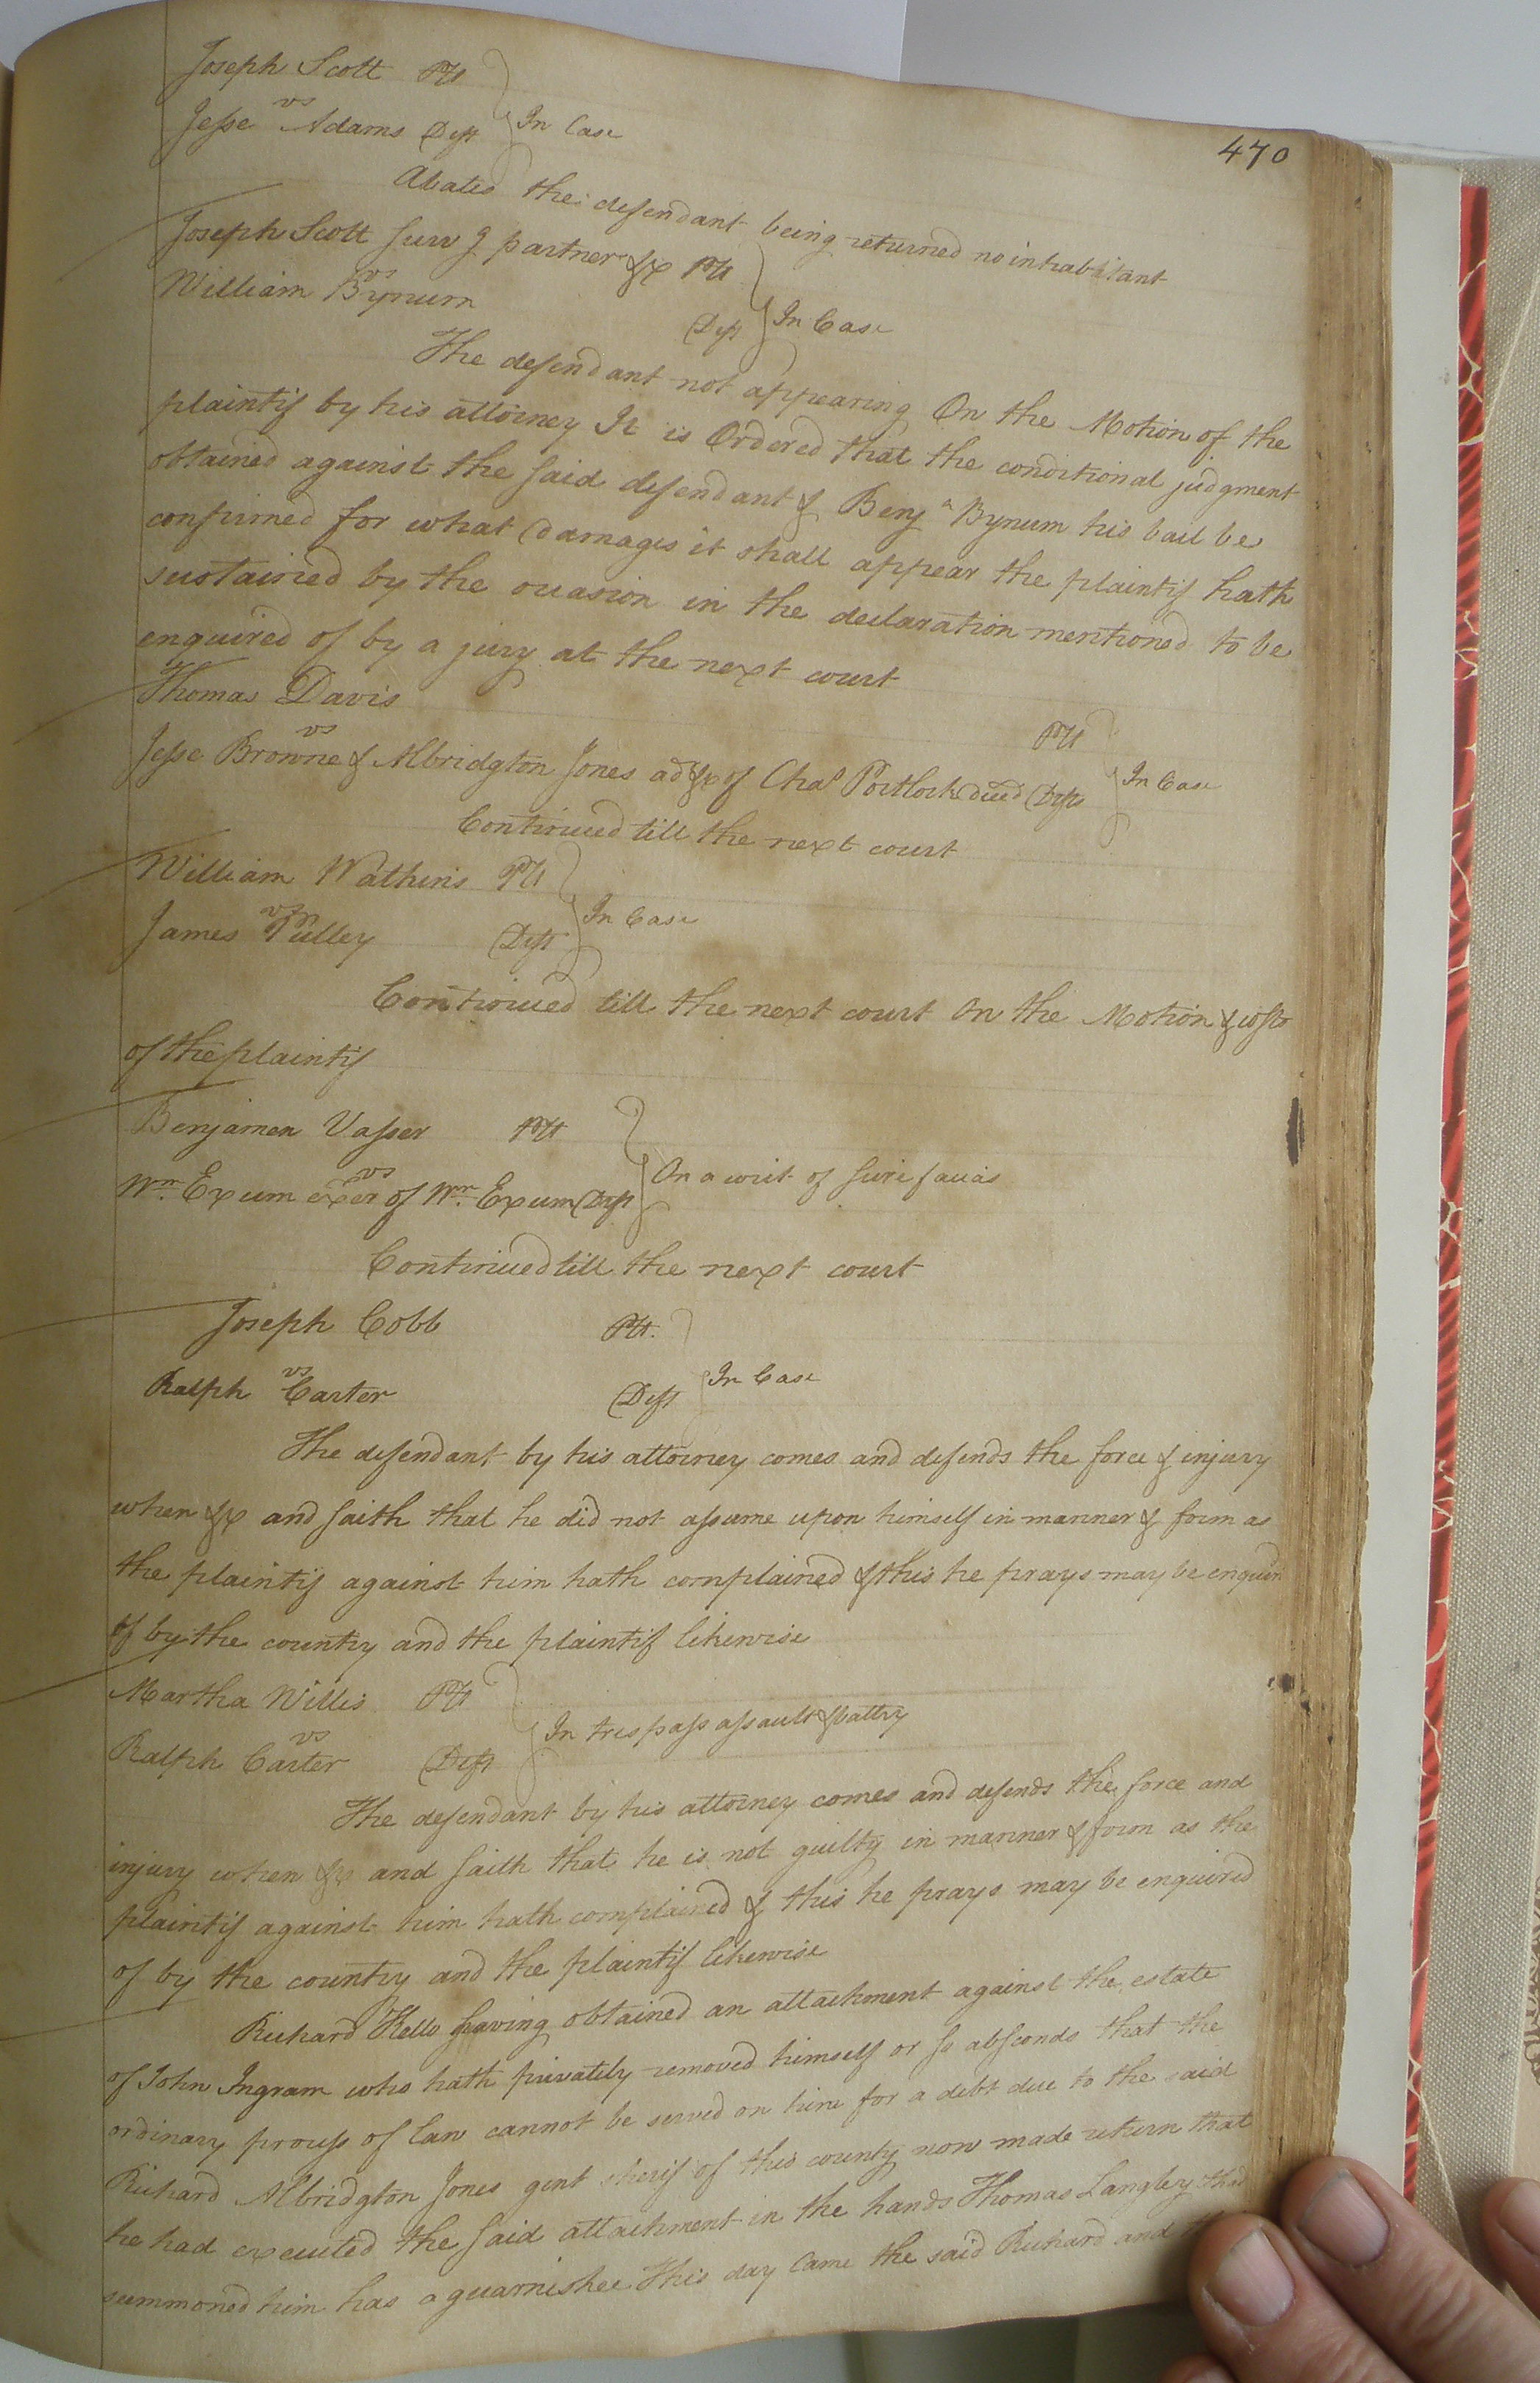 470
Joseph Scott Plt
vs
Jesse Adams Deft
In Case
Abates the defendant being returned no inhabitant
Joseph Scott surv g partner &c Plt
vs
William Bynum Deft
In Case
The defendant not appearing On the Motion of the
plaintif by his attorney It is Ordered that the conditional judgment
obtained against the said defendant & Benj a Bynum his bail be
confirmed for what damages it shall appear the plaintif hath
sustained by the occasion in the declaration mentioned to be
enquired of by a jury at the next court
Thomas Davis Plt
vs
Jesse Browne & Albridgton Jones ad &c of Chas Portlock deced Defts
In Case
Continued till the next court
William Watkins Plt
vs
James Pulley Deft
In Case
Continued till the next court On the Motion & costs
of the plaintif
Benjamen Vasser Plt
vs
Wm. Exum exer of Wm. Exum Deft
On a writ of scire facias
Continued till the next court
Joseph Cobb Plt.
vs
Ralph Carter Deft
In Case
The defendant by his attorney comes and defends the force & injury
when &c and saith that he did not assume upon himself in manner & form as
the plaintif against him hath complained & this he prays may be enquird
of by the country and the plaintif likewise
Martha Willis Plt
vs
Ralph Carter Deft
In trespass assault & battry
The defendant by his attorney comes and defends the force and
injury when &c and saith that he is not guilty in manner & form as the
plaintif against him hath complained & this he prays may be enquired
of by the country and the plaintif likewise
Richard Kello having obtained an attachment against the estate
of John Ingram who hath privately removed himself or so absconds that the
ordinary process of law cannot be served on him for a debt due to the said
Richard Albridgton Jones gent sherif of this county now made return that
he had executed the said attachment in the hands Thomas Langley &
summoned him has a guarnishee This day came the said Richard and